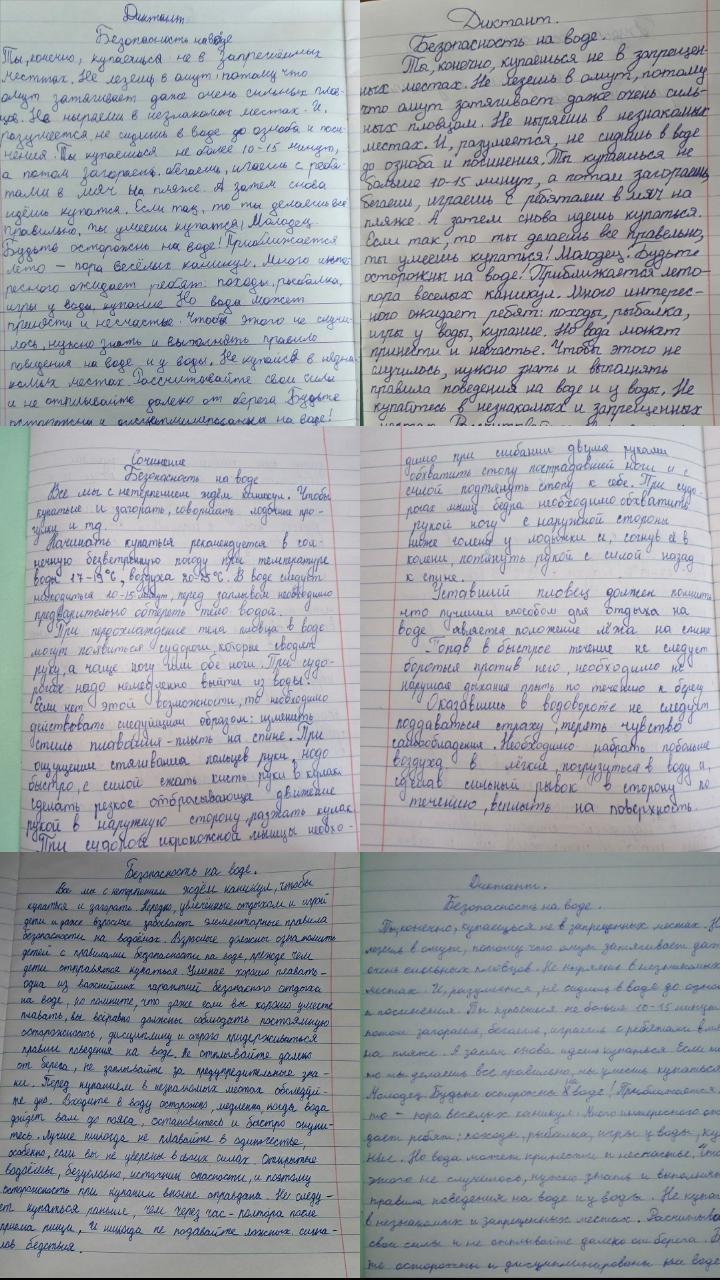 Диктант
Безопасность на воде
Ты, конечно, купаешься не в запрещённых
местах. Не лезешь в омут, потому что
омут затягивает даже очень сильных плов-
цов. Не ныряем в незнакомых местах. И,
разумеется, не сидишь в воде до озноба и поси-
нения. Ты купаешься не более 10-15 минут,
а потом загораешь, бегаешь, играешь с ребя-
тами в мяч на пляже. А затем снова
идёшь купатся. Если так, то ты делаешь все
правильно, ты умеешь купатся! Молодец.
Будьте осторожно на воде! Приближается
лето – пора весёлых каникул. Много инте-
ресного ожидает ребят: походы, рыбалка,
игры у воды, купание. Но вода может
принести и несчастье. Чтобы этого не случи-
лось, нужно знать и выполнять правило
поведения на воде и у воды. Не купайся в незна-
комых местах. Рассчитывайте свои силы
и не отплывайте далеко от берега. Будьте
осторожны и дисциплинированы на воде!
Диктант.
Безопасность на воде.
Ты, конечно, купаешься не в запрещен-
ных местах. Не лезешь в омут, потому
что омут затягивает даже очень силь-
ных пловцам. Не ныряешь в незнакомых
местах. И, разумеется, не сидишь в воде
до озноба и посинения. Ты купаешься не
больше 10-15 минут, а потом загораешь,
бегаешь, играешь с ребятами в мяч на
пляже. А затем снова идешь купаться.
Если так, то ты делаешь все правильно,
ты умеешь купаться! Молодец. Будьте
осторожны на воде! Приближается лето-
пора веселых каникул. Много интерес-
ного ожидает ребят: походы, рыбалка,
игры у воды, купание. Но вода может
принести и несчастье. Чтобы этого не
случилось, нужно знать и выполнять
правила поведения на воде и у воды. Не
купайтесь в незнакомых и запрещенных
Сочинение
Безопасность на воде
Все мы с нетерпением ждём каникул. Чтобы
купаться и загорать, совершать лодочные про-
гулки и т.д.
Начинать купаться рекомендуется в сол-
нечную безветренную погоду при температуре
воды 17-19°С, воздуха 20-25°С. В воде следует
находиться 10-15 минут, перед заплывом необходимо
предварительно обтереть тело водой.
При переохлаждение тела пловца в воде
могут появиться судороги, которые сводят
руку, а чаще ногу или обе ноги. При судо-
рогах надо немедленно выйти из воды.
Если нет этой возможности, то необходимо
действовать следующим образом: изменить
стиль плавания - плыть на спине. При
ощущение стягивания пальцев руки, надо
быстро, с силой сжать кисть руки в кулак,
сделать резкое отбрасывающее движение
рукой в наружную сторону, разжать кулак
При судороге икроножной мышцы необхо-
димо при сгибании двумя руками
обхватить стопу пострадавшей ноги и с
силой подтянуть стопу к себе. При судо-
рогах мышц бедра необходимо обхватить
рукой ногу с наружной стороны
ниже голени у лодыжки и, согнув её в
колени, потянуть рукой с силой назад
к спине.
Уставший пловец должен помнить
что лучшим способом для отдыха на
воде является положение лёжа на спине
Попав в быстрое течение не следует
бороться против него, необходимо не
нарушая дыхания плыть по течению к берегу
Оказавшись в водовороте не следует
поддаваться страху, терять чувство
самообладения. Необходимо набрать побольше
воздуха в лёгкие, погрузиться в воду и,
сделав сильный рывок в сторону по
течению, всплыть на поверхность.
Безопасность на воде.
Все мы с нетерпением ждём каникул, чтобы
купаться и загорать. Нередко, увлечённые отдыхом и игрой
дети и даже взрослые забывают элементарные правила
безопасности на водоёмах. Взрослые должны ознакомить
детей с правилами безопасности на воде, прежде чем
дети отправятся купаться. Умение хорошо плавать-
одна из важнейших гарантий безопасного отдыха
на воде, но помните, что даже если вы хорошо умеете
плавать, вы всёравно должны соблюдать постоянную
осторожность, дисциплину и строго придерживаться
правил поведения на воде. Не отплывайте далеко
от берега, не заплывайте за предупредительные зна-
ки. Перед купанием в незнакомых местах обследуй-
те дно. Входите в воду осторожно, медленно, когда вода
дойдет вам до пояса, остановитесь и быстро окуни-
тесь. Лучше никогда не плавайте в одиночестве,
особенно, если вы не уверены в своих силах. Открытые
водоёмы, безусловно, источник опасности, и поэтому
осторожность при купании вполне оправдана. Не следу-
ет купаться раньше, чем через час - полтора после
приема пищи, И никогда не подавайте ложных сигна-
лов бедствия.
Диктант.
Безопасность на воде.
Ты, конечно, купаешься не в запрещенных местах. Не
лезешь в омут, потому что омут затягивает даже
очень сильных пловцов. Не ныряешь в незнакомых
местах. И, разумеется, не сидишь в воде до озноба
и посинения. Ты купаешься не больше 10-15 минут
потом загораешь, бегаешь, играешь с ребятами в мяч
на пляже. А затем снова идешь купаться. Если так
то ты делаешь все правильно, ты умеешь купаться
Молодец. Будьте осторожны на воде! Приближается
то - пора веселых каникул. Много интересного ожи
дает ребят: походы, рыбалка, игры у воды, купа
ние. Но вода может принести и несчастье. Чтобы
этого не случилось, нужно знать и выполнять
правила поведения на воде и у воды. Не купай
в незнакомых и запрещенных местах. Рассчитывай
свои силы и не отплывайте далеко от берега. Б
те осторожны и дисциплинированы на воде